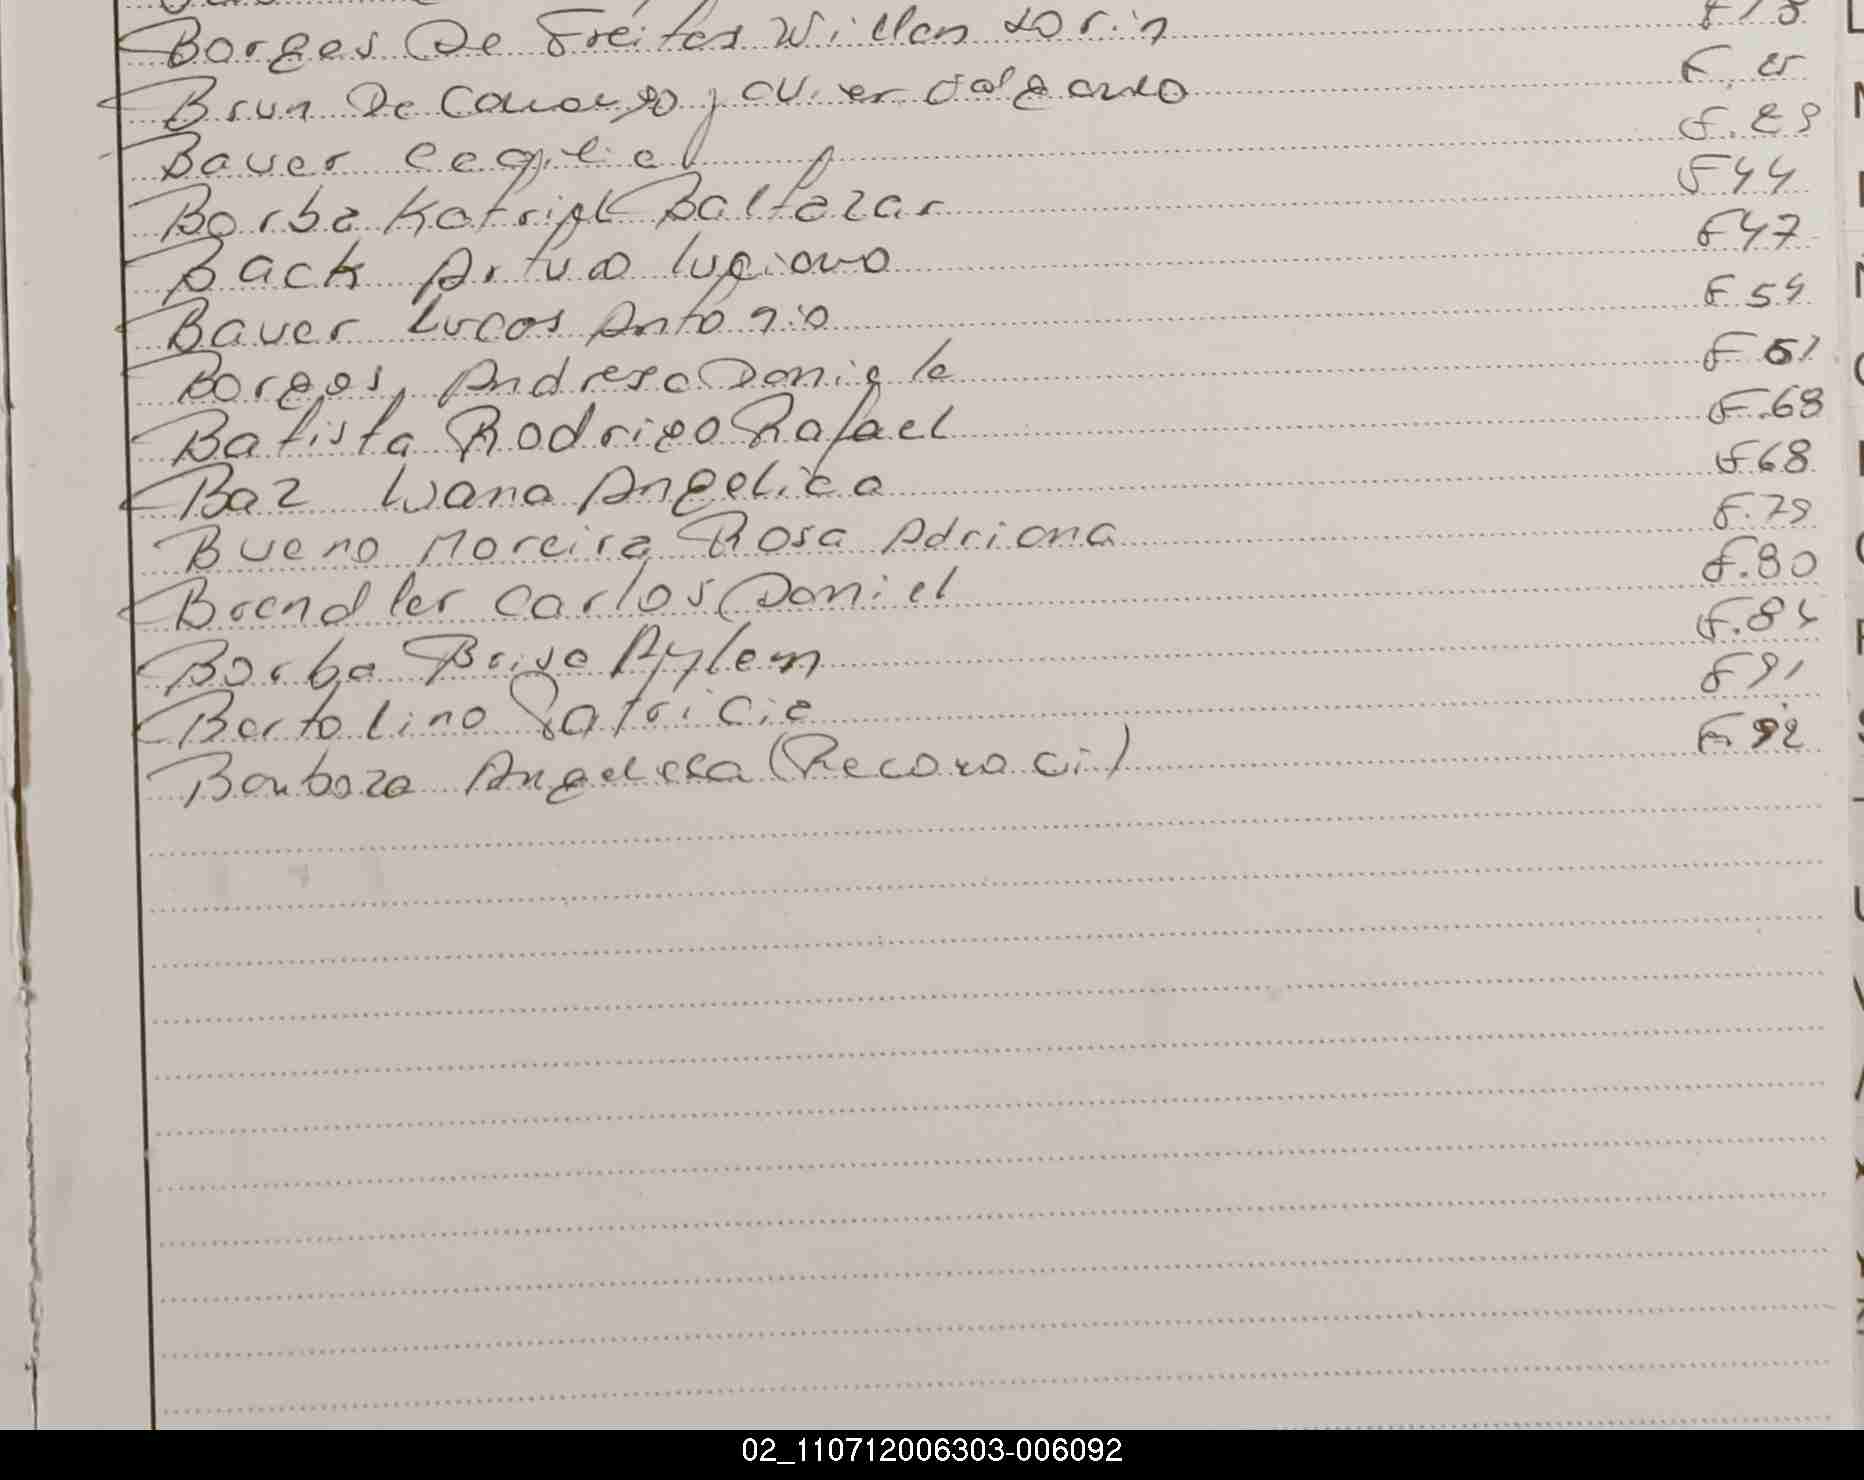 Borges De Freitas Willan Lorin F 13
Brun De Camargo Javier Salgardo F. 25
Bauer Cecilia F. 29
Borba Katriel Baltazar F 44
Back Arturo Luciano F 47
Bauer Lucas Antonio F 54
Borges Andresa Daniela F 61
Batista Rodrigo Rafael F. 68
Baz Luana Angelica F 68
Bueno Moreira Rosa Adriana F. 79
Brendler Carlos Daniel F. 80
Borba Brisa Aylem F. 84
Bertolino Patricia F 91
Barboza Angelica (Reconoci) F 92
L
N
02_110712006303-006092